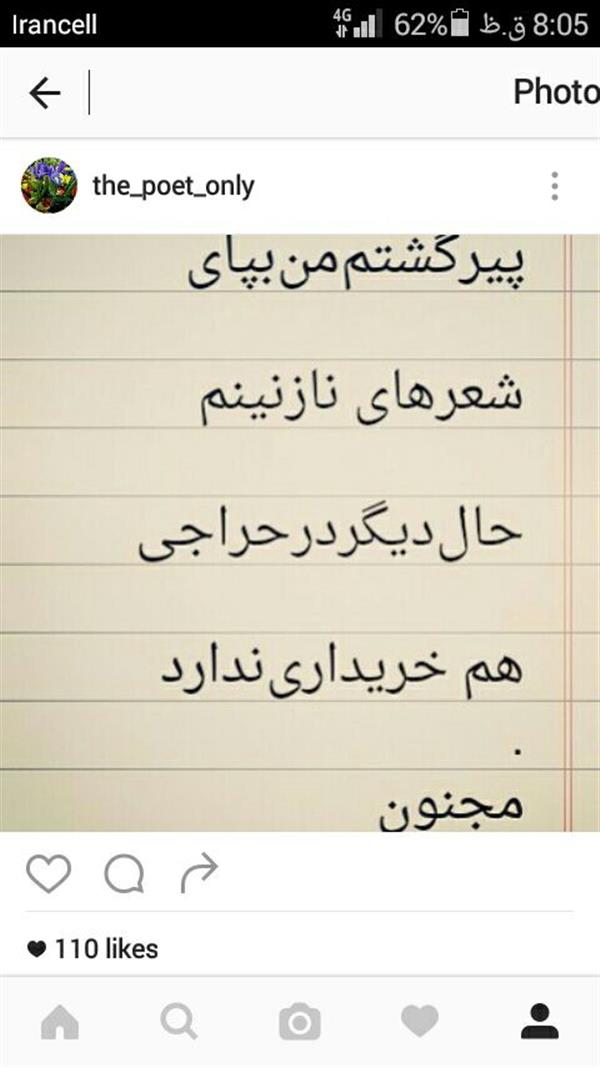 Irancell 4G 62% 8:05 ق.ظ
Photo
the_poet_only
پیرگشتم من بپای
شعرهای نازنینم
حال دیگر در حراجی
هم خریداری ندارد
.
مجنون
110 likes